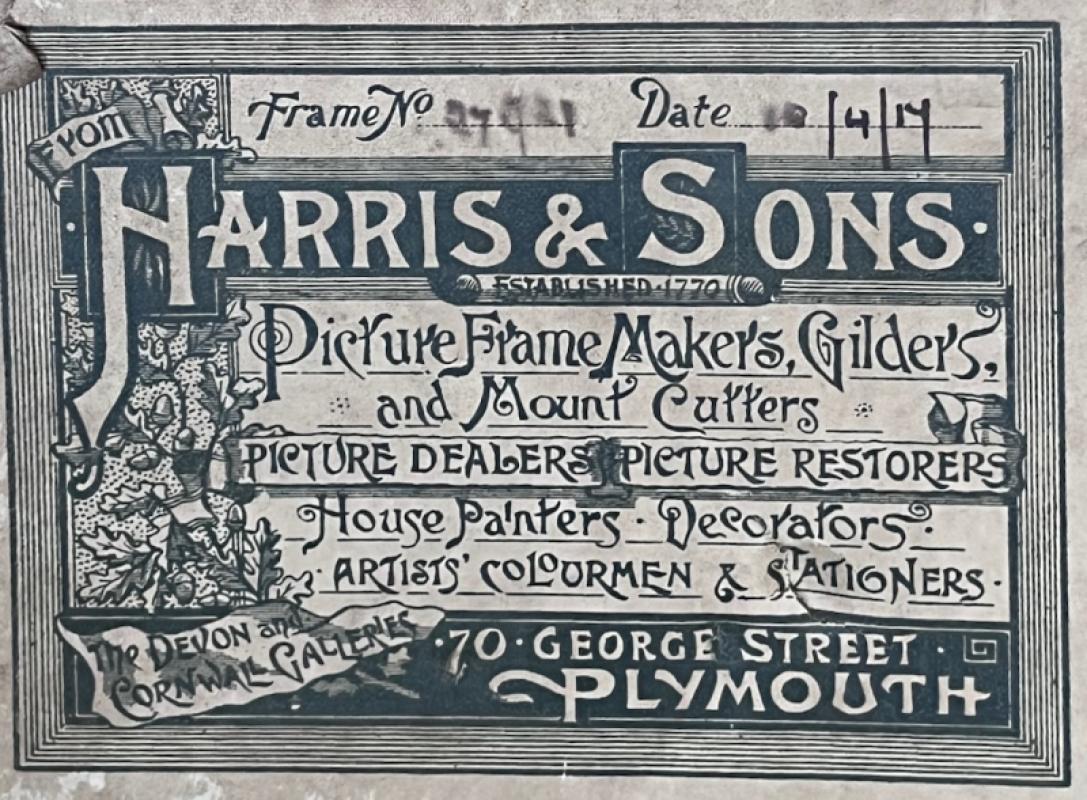 From
Frame No Date /4/17
HARRIS & SONS.
ESTABLISHED·1770
Picture Frame Makers, Gilders,
and Mount Cutters
PICTURE DEALERS PICTURE RESTORERS
House Painters · Decorators ·
· ARTISTS' COLOURMEN & STATIONERS ·
The DEVON and
CORNWALL GALLERIES
·70·GEORGE STREET ·
PLYMOUTH